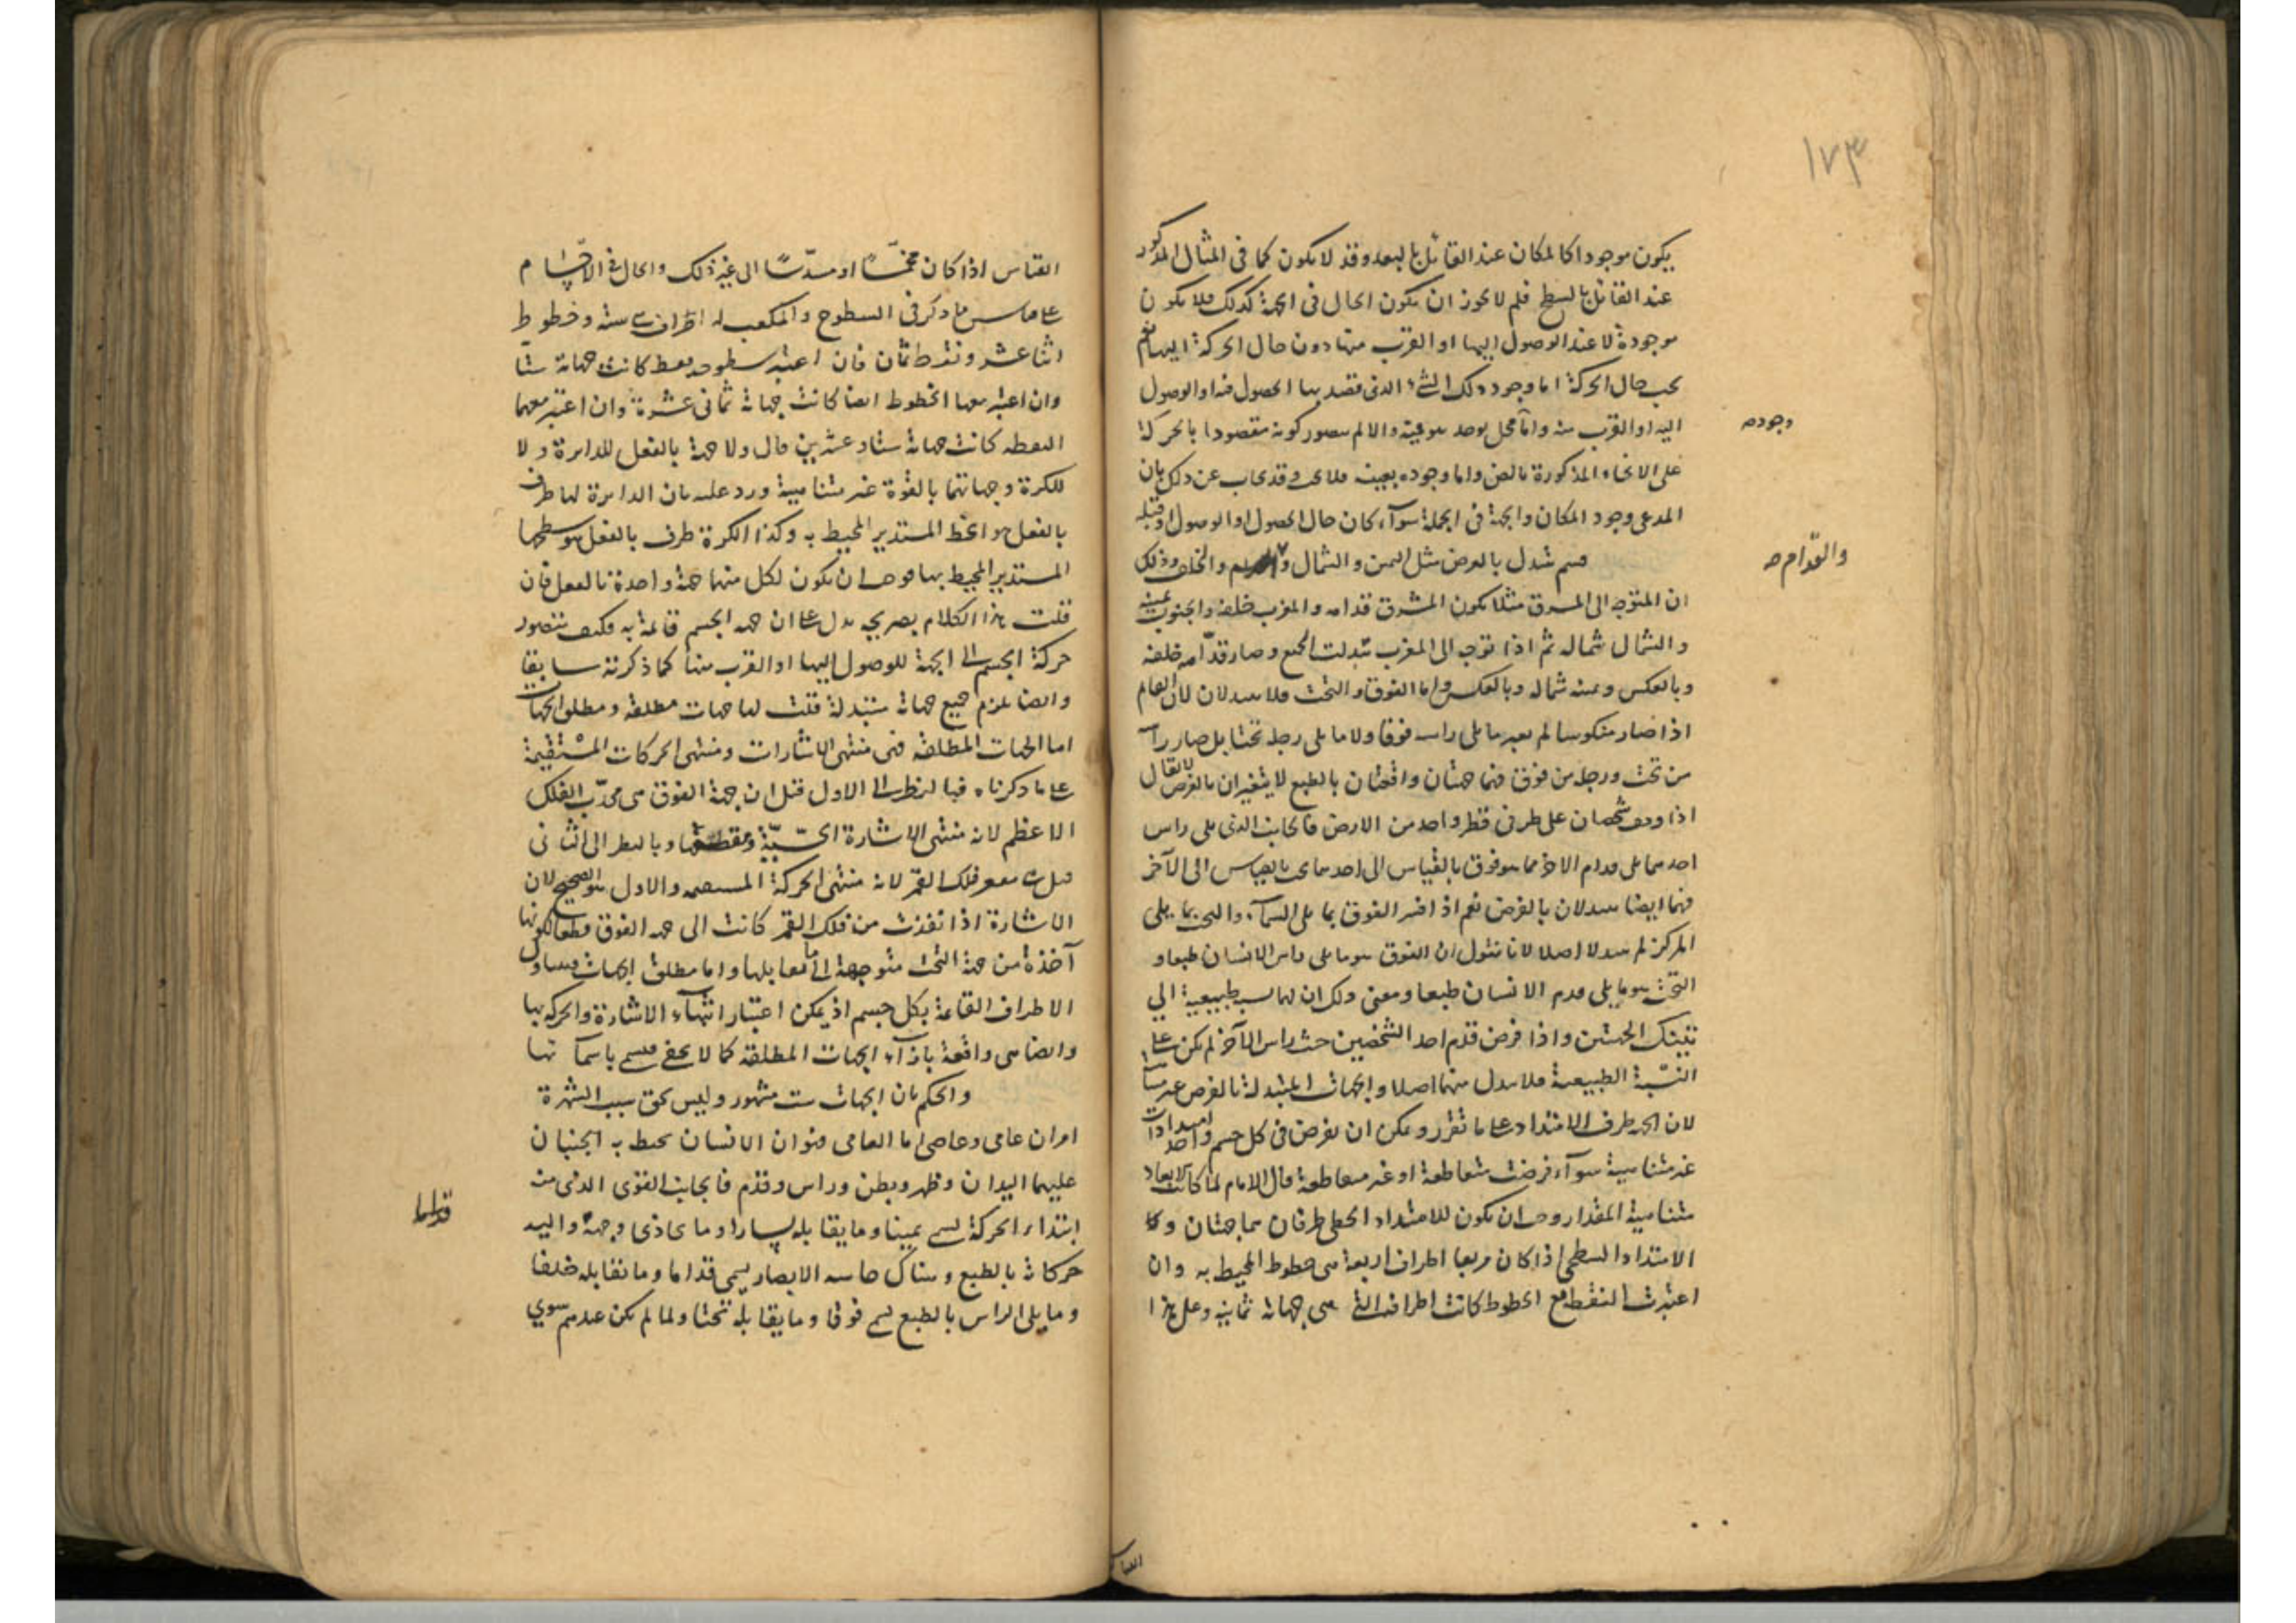 ١٧٣
يكون موجودا كالمكان عند القائل بالبعد وقد لا يكون كما فى المثال المذكور
عند القائل بالسطح فلم لا يجوز ان يكون الحال فى الجهة كذلك فلا يكون
موجودة لا عند الوصول اليها او القرب منها دون حال الحركة اليها
يجب حال الحركة اما وجود ذلك الشىء الذى قصد بها الحصول فيه او الوصول
اليه او القرب منه واما محل يوجد هو فيه والا لم يتصور كونه مقصودا بالحركة
وجوده
على الانحاء المذكورة بالضرورة واما وجوده بعينه فلا وقد يجاب عن ذلك بان
المدعى وجود المكان والجهة فى الجملة سوآء كان حال الحصول او الوصول او قبله
قسم يتبدل بالعرض مثل اليمين والشمال والخلف وذلك
والقدّام صح
ان المتوجه الى المشرق مثلا يكون المشرق قدامه والمغرب خلفه والجنوب يمينه
والشمال شماله ثم اذا توجه الى المغرب تبدلت الجميع وصار قدّامه خلفه
وبالعكس ويمينه شماله وبالعكس واما الفوق والتحت فلا يتبدلان لان القائم
اذا صار منكوسا لم يصر ما يلى راسه فوقا ولا ما يلى رجله تحتا بل صار راسه
من تحت ورجله من فوق فهما جهتان واقعتان بالطبع لا يتغيران بالفرض لا يقال
اذا وقف شخصان على طرفى قطر واحد من الارض فالجانب الذى يلى راس
احدهما يلى قدم الاخر فما هو فوق بالقياس الى احدهما تحت بالقياس الى الآخر
فهما ايضا يتبدلان بالفرض نعم اذا فسر الفوق بما يلى السمآء والتحت بما يلى
المركز لم يتبدلا اصلا لانا نقول ان الفوق هو ما يلى راس الانسان طبعا و
التحت هو ما يلى قدم الانسان طبعا ومعنى ذلك ان لهما نسبة طبيعية الى
تينك الجهتين واذا فرض قدم احد الشخصين حيث راس الآخر لم يكن على
النسبة الطبيعية فلا يتبدل منهما اصلا والجهات المتبدلة بالفرض غير متناهية
لان الجهة طرف الامتداد على ما تقرر ويمكن ان يفرض فى كل جسم واحد امتدادات
غير متناهية سوآء فرضت متقاطعة او غير متقاطعة قال الامام لما كانت الابعاد
متناهية المقدار وجب ان يكون للامتداد الخطى طرفان هما جهتان و
الامتداد السطحى اذا كان مربعا اطراف اربعة هى خطوط المحيط به وان
اعتبرت النقط مع الخطوط كانت اطرافه التى هى جهاته ثمانية وعلى هذا
القياس اذا كان مخمّسًا او مسدّسًا الى غير ذلك والحال فى الاجسام
على قياس ما ذكر فى السطوح والمكعب له اطراف ستة وخطوط
اثنا عشر ونقط ثمان فان اعتبر سطوحه فقط كانت جهاته ستا
وان اعتبر معها الخطوط ايضا كانت جهاته ثمانى عشرة وان اعتبر معهما
النقطة كانت جهاته ستا وعشرين قال ولا جهة بالفعل للدائرة ولا
للكرة وجهاتهما بالقوة غير متناهية ورد عليه بان الدائرة لها طرف
بالفعل هو الخط المستدير المحيط به وكذا الكرة طرف بالفعل هو سطحها
المستدير المحيط بها فوجب ان يكون لكل منهما جهة واحدة بالفعل فان
قلت هذا الكلام بصريحه يدل على ان جهة الجسم قائمة به فكيف يتصور
حركة الجسم الى الجهة للوصول اليها او القرب منها كما ذكرته سابقا
وايضا يلزم جميع جهاته متبدلة قلت لها جهات مطلقة ومطلق الجهات
اما الجهات المطلقة فهى منتهى الاشارات ومنتهى الحركات المستقيمة
على ما ذكرناه فبالنظر الى الاول قيل ان جهة الفوق هى محدّب الفلك
الاعظم لانه منتهى الاشارة الحسّيّة ومقطعها وبالنظر الى الثانى
قيل هى مقعر فلك القمر لانه منتهى الحركة المستقيمة والاول هو الصحيح لان
الاشارة اذا نفذت من فلك القمر كانت الى جهة الفوق قطعا لكونها
آخذة من جهة التحت متوجهة الى ما يقابلها واما مطلق الجهات فيتناول
الاطراف القائمة بكل جسم اذ يمكن اعتبار انتهآء الاشارة والحركة بها
وايضا هى واقعة بازآء الجهات المطلقة كما لا يخفى فسمى باسمآئها
والحكم بان الجهات ست مشهور وليس بحق سبب الشهرة
امران عامى وخاصى اما العامى فهو ان الانسان يحيط به الجنبان
عليهما اليدان وظهر وبطن وراس وقدم فالجانب القوى الذى منه
ابتداء الحركة يسمى يمينا وما يقابله يسارا وما يحاذى وجهه واليه
قداما
حركاته بالطبع وهناك حاسة الابصار يسمى قداما وما يقابله خلفا
وما يلى الراس بالطبع يسمى فوقا وما يقابله تحتا ولما لم يكن عندهم سوى
القياس